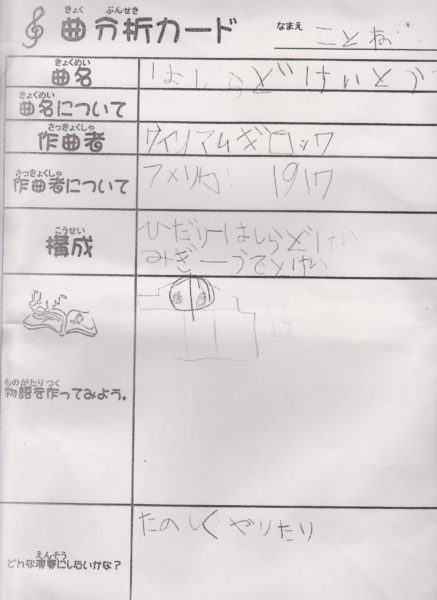 きょく ぶんせき
曲分析カード
なまえ ことね
きょくめい
曲名 はしらどけいとう
きょくめい
曲名について
さっきょくしゃ
作曲者 ウイリアムギロック
さっきょくしゃ
作曲者について アメリカ 1917
こうせい
構成 ひだりーはしらどけい
みぎーうでどけい
ものがたりつく
物語を作ってみよう。
えんそう
どんな演奏にしたいかな? たのしくやりたり